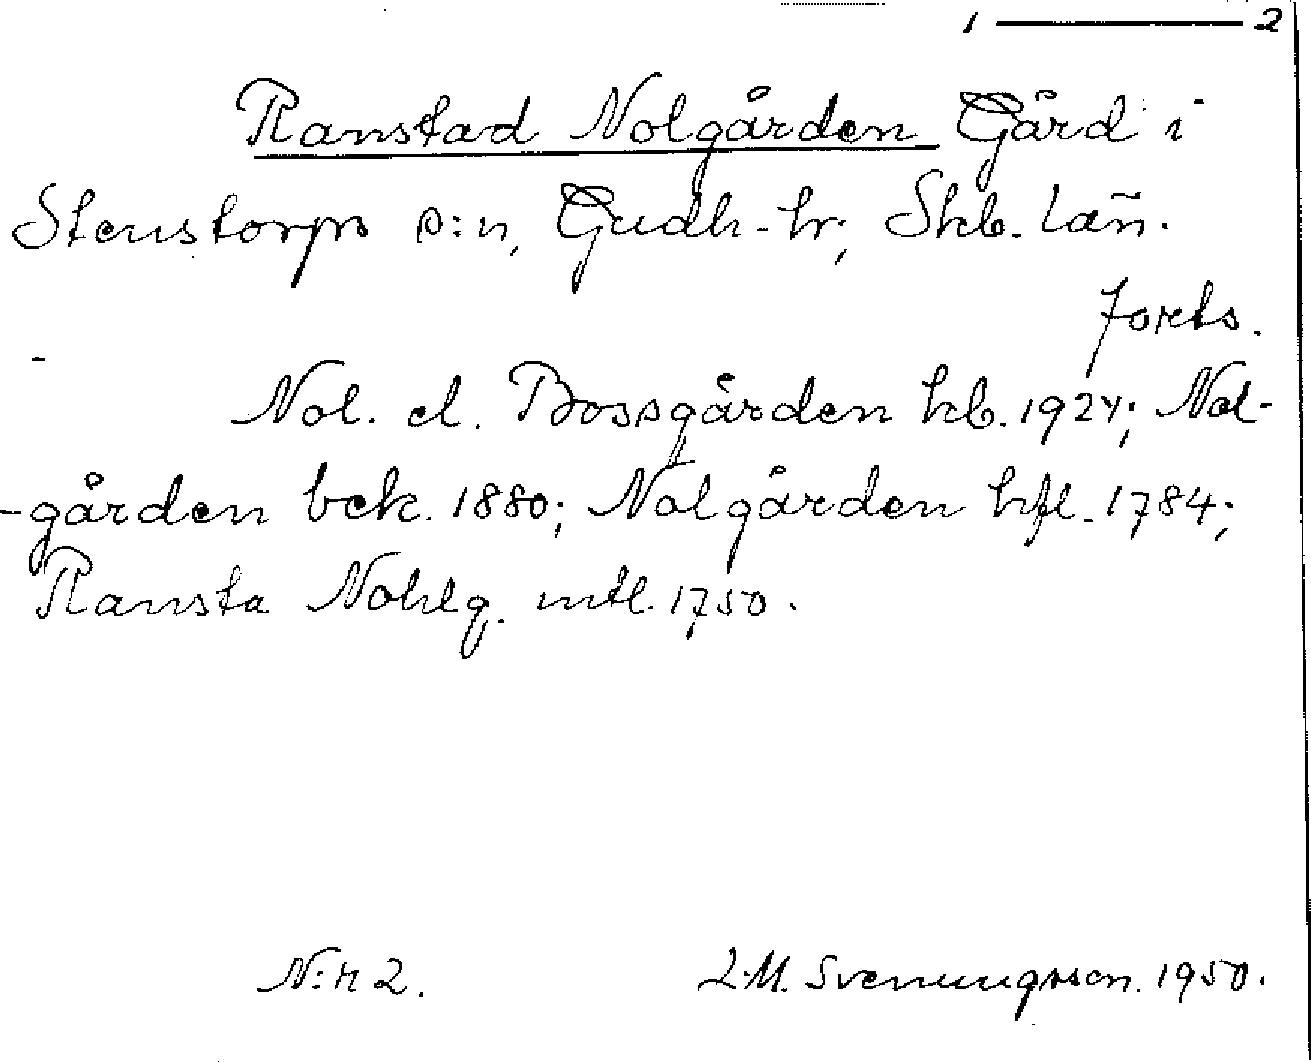 1 — 2
Ranstad Nolgården Gård i
Stenstorps s:n, Gudh-hr, Skb. län.
forts.
Nol. el. Bossgården kb. 1924; Nol-
-gården bek. 1880; Nolgården hfl. 1784;
Ransta Nohlg. mtl. 1750.
N:r 2. L.M. Svenungsson. 1950.